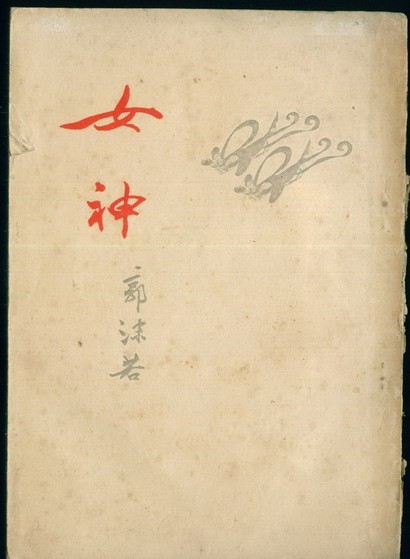 女神
郭沫若